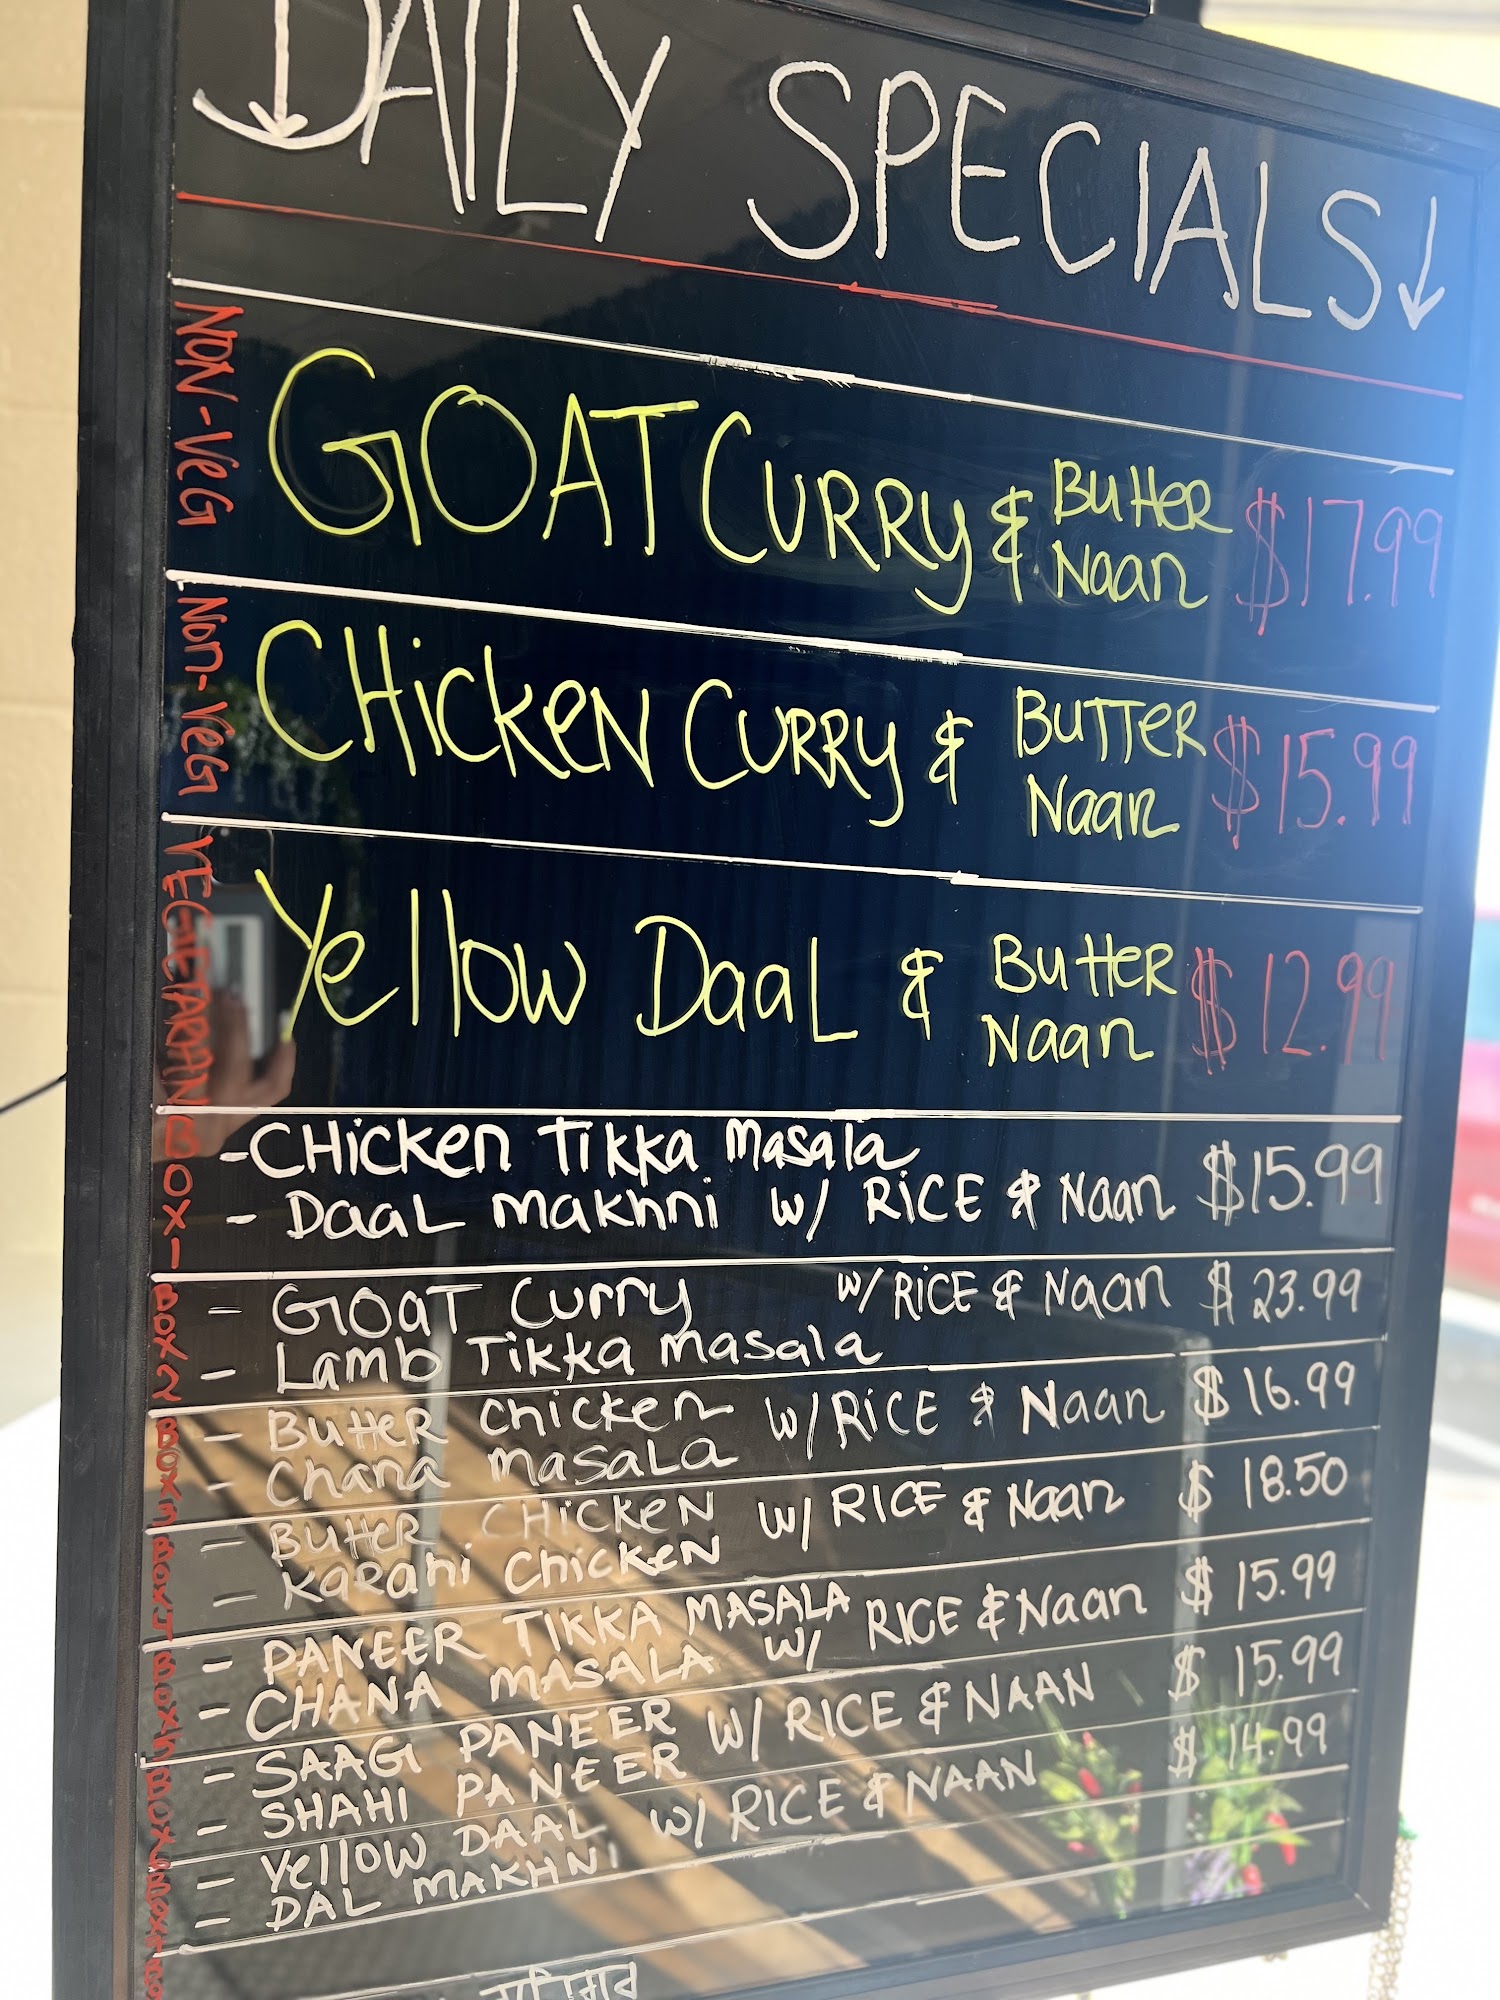 DAILY SPECIALS
NON-VEG
GOAT CURRY & Butter Naan $17.99
NON-VEG
CHICKEN CURRY & BUTTER Naan $15.99
VEGETARIAN
Yellow DaaL & Butter Naan $12.99
BOX 1
- CHicken Tikka masala
- DaaL makhni w/ RICE & Naan $15.99
BOX 2
- GOaT Curry w/ RICE & Naan $23.99
- Lamb Tikka masala
BOX 3
- Butter Chicken w/ RICE & Naan $16.99
- Chana masaLa
BOX 4
- Butter CHicKeN w/ RICE & Naan $18.50
- Karahi ChicKeN
BOX 5
- PANEER TIKKA MASALA
- CHANA MASALA W/ RICE & Naan $15.99
BOX
- SAAG PANEER W/ RICE & NAAN $15.99
- SHAHI PANEER
BOX
- Yellow DAAL W/ RICE & NAAN $14.99
- DAL MAKHNI